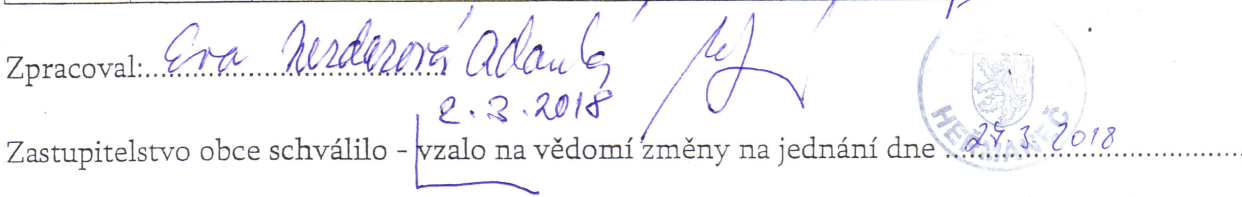 Zpracoval: Eva
2.3.2018
Zastupitelstvo obce schválilo - vzalo na vědomí změny na jednání dne 27.3.2018